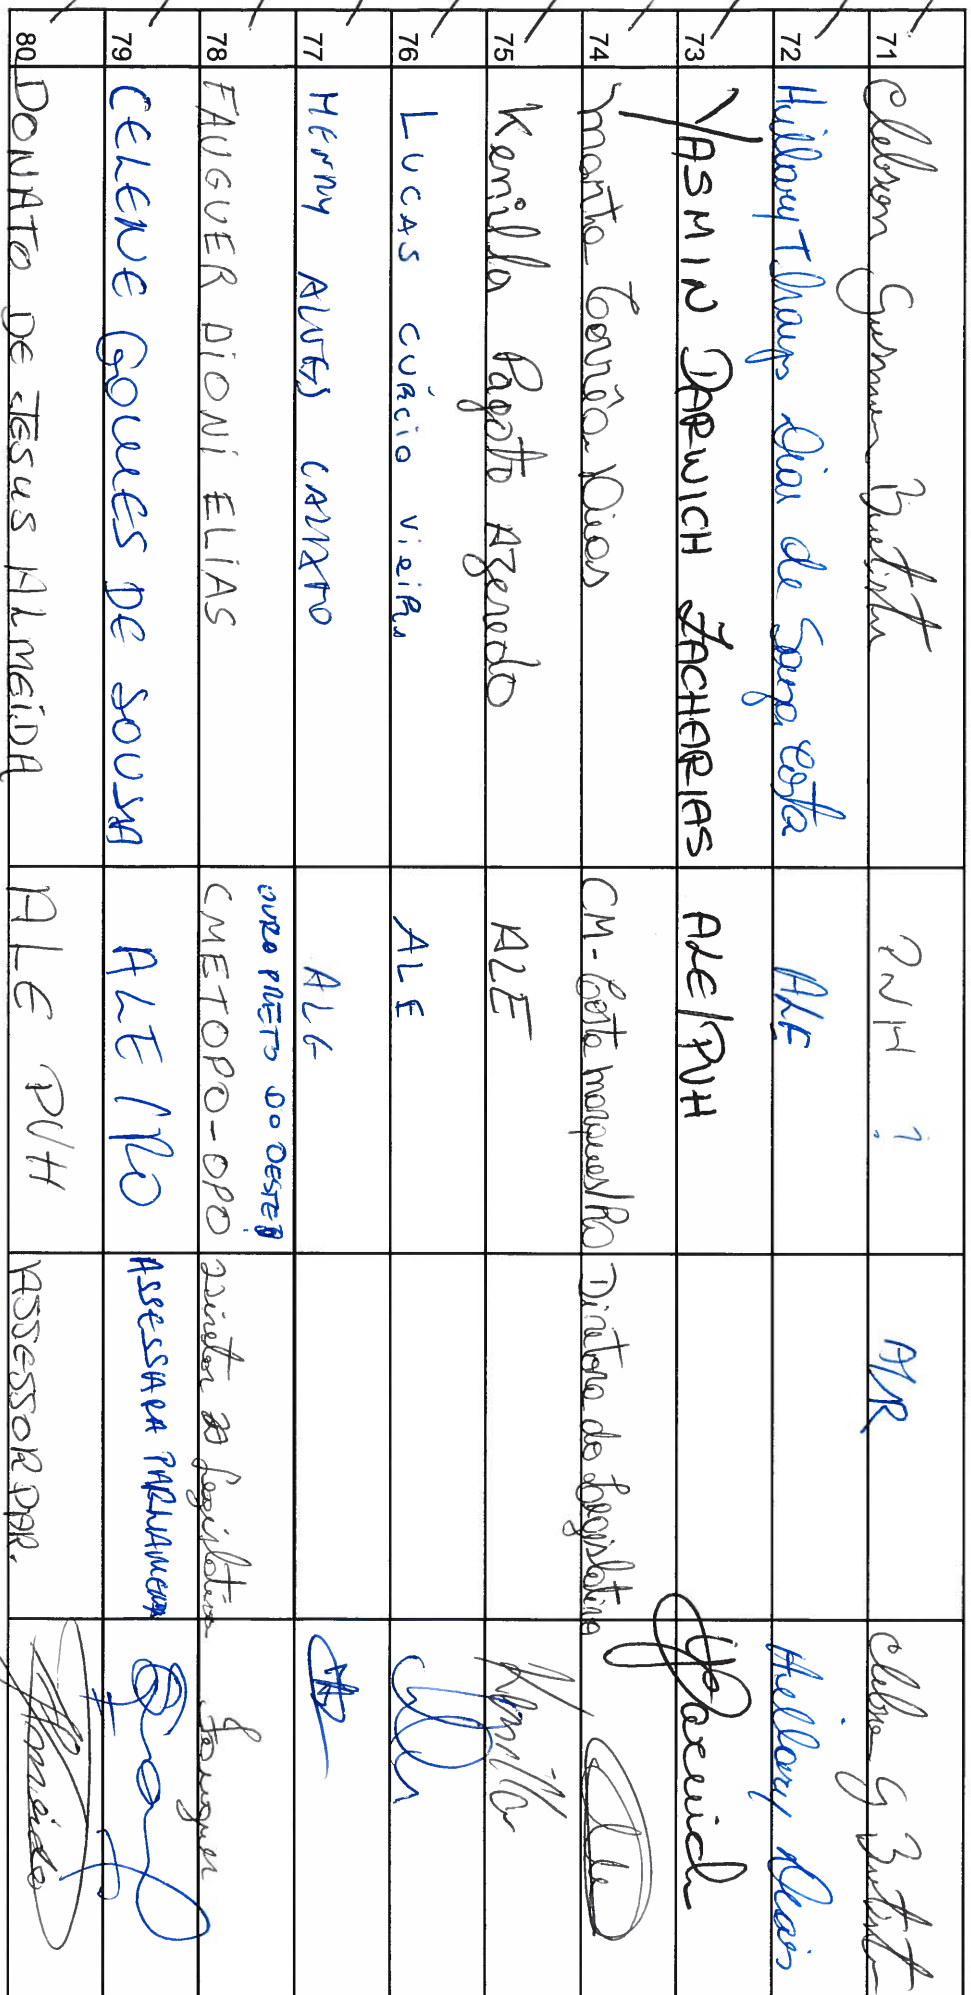 71 Clebson Gusmão Batista PVH ? A/R Clebson G Batist
72 Hillary Thays Dias de Souza Costa ALE Hillary Dias
73 YASMIN DARWICH ZACHARIAS ALE/PVH YDarwich
74 marta Corrêa Dias CM-Costa marques/Ro Diretora do Legislativo
75 Kenilla Pagoto Azeredo ALE Kenilla
76 LUCAS CÚRCIO VIEIRA ALE
77 HENRY ALVES CALIXTO ALE
OURO PRETO DO OESTE
78 FAUGUER DIONI ELIAS CMETOPO-OPO Diretor Legislativo Fauguer
79 CELENE GOMES DE SOUSA ALE/RO ASSESSARA PARLAMENTAR
80 DONATO DE JESUS ALMEIDA ALE PVH ASSESSOR PAR. Almeida